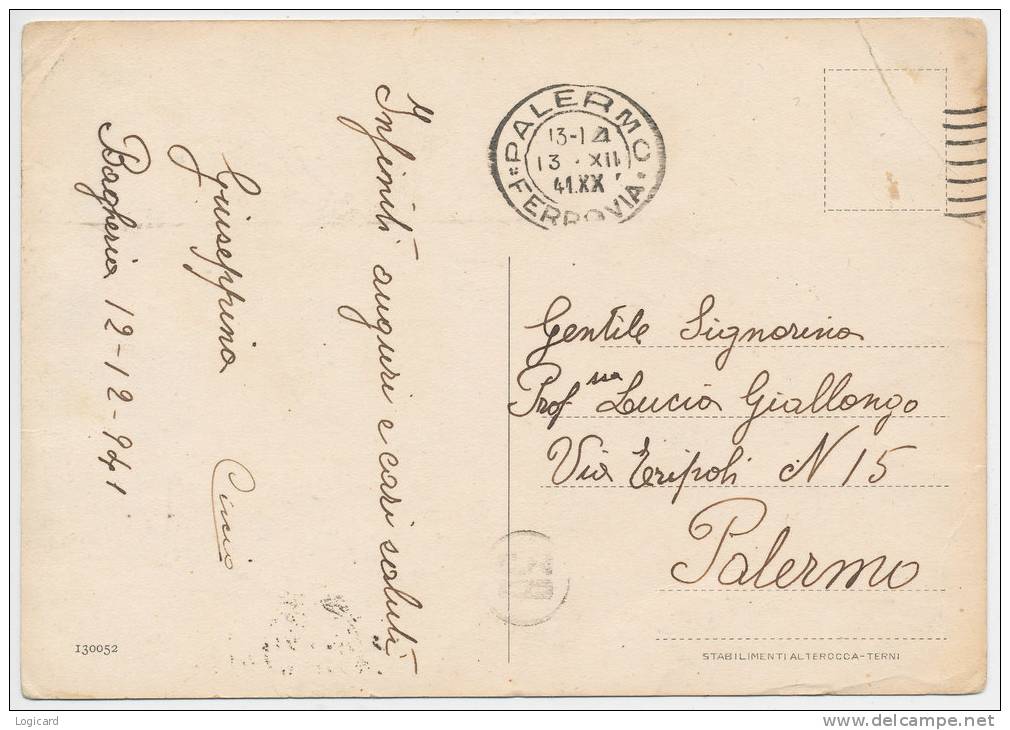 PALERMO
13-14
13 · XII
41.XX
FERROVIA
Infiniti auguri e cari saluti
Giuseppina
Bagheria 12-12-941
Gentile Signorina
Prof.ssa Lucia Giallongo
Via Tripoli N 15
Palermo
130052
STABILIMENTI ALTEROCCA-TERNI
Logicard
www.delcampe.net